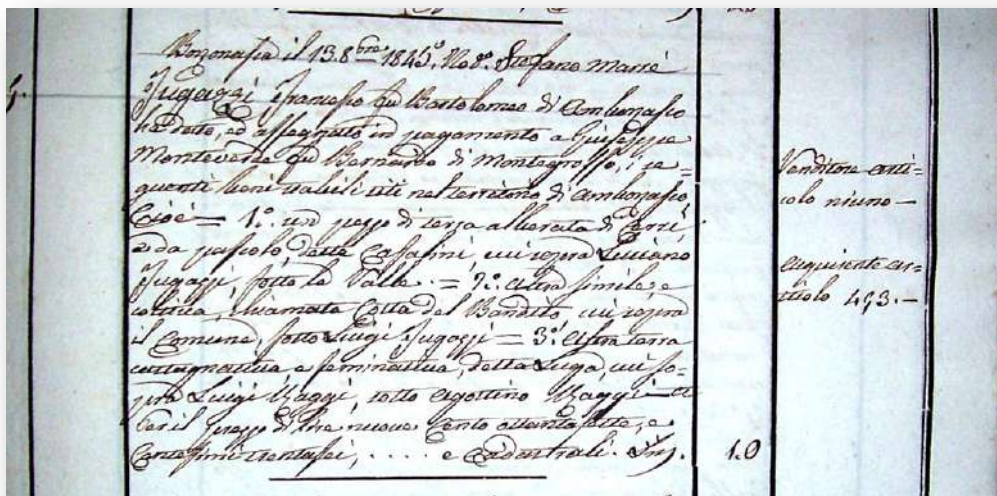 Borzonasca il 13. 8bre 1845. Nod.o Stefano Marrè
Fugazzi Francesco fu Bartolomeo di Ambonasco
ha dato, ed assegnato in pagamento a Giuseppe
Monteverde fu Bernardo di Montegrosso, i se-
guenti beni stabili siti nel territorio di Ambonasco,
Cioè = 1.o un pezzo di terra alberata di Cerri,
e da pascolo, detta Casasine, cui sopra Luciano
Fugazzi, sotto la Valle. = 2.o Altra simile, e
boschiva, chiamata Costa del Bandito cui sopra
il Comune, sotto Luigi Fugazzi = 3.o Altra terra
castagnativa, e seminativa, detta Luga, cui so=
pra Luigi Maggi, sotto Agostino Maggi =
Per il prezzo di lire nuove Cento ottantasette, e
Centesimi trentasei, .... e Cadastrali.
1.0
Venditore arti=
colo niuno —
Acquirente ar=
ticolo 493. —